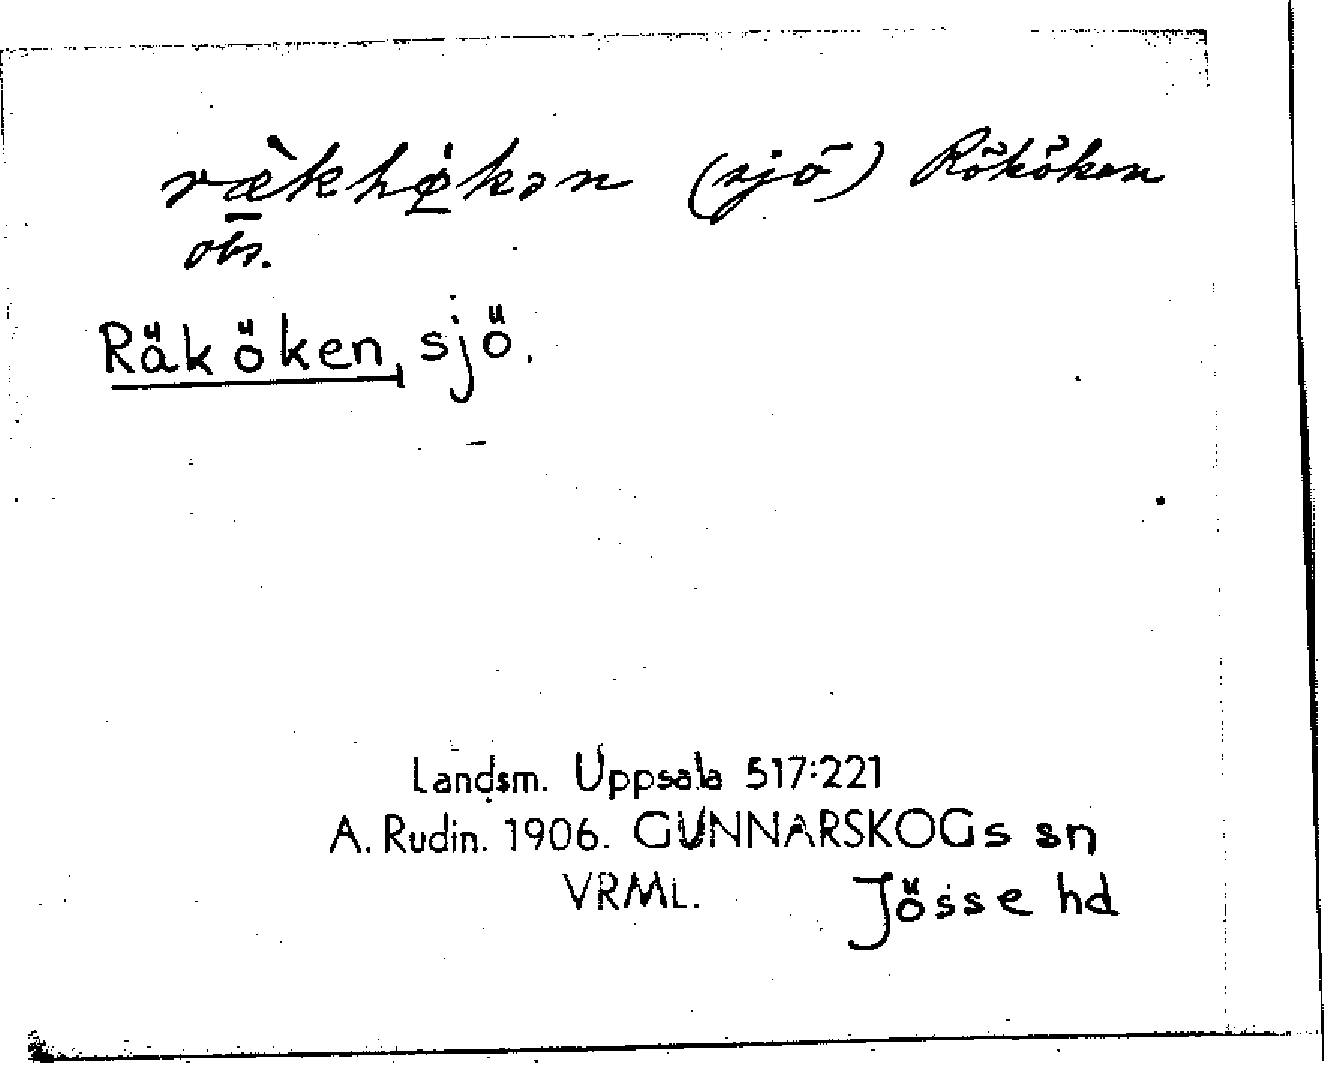 ræ̀khǿ̣kən (sjö) Rököken
obs.
Räköken, sjö.
Landsm. Uppsala 517:221
A. Rudin. 1906. GUNNARSKOGs sn
VRML. Jösse hd